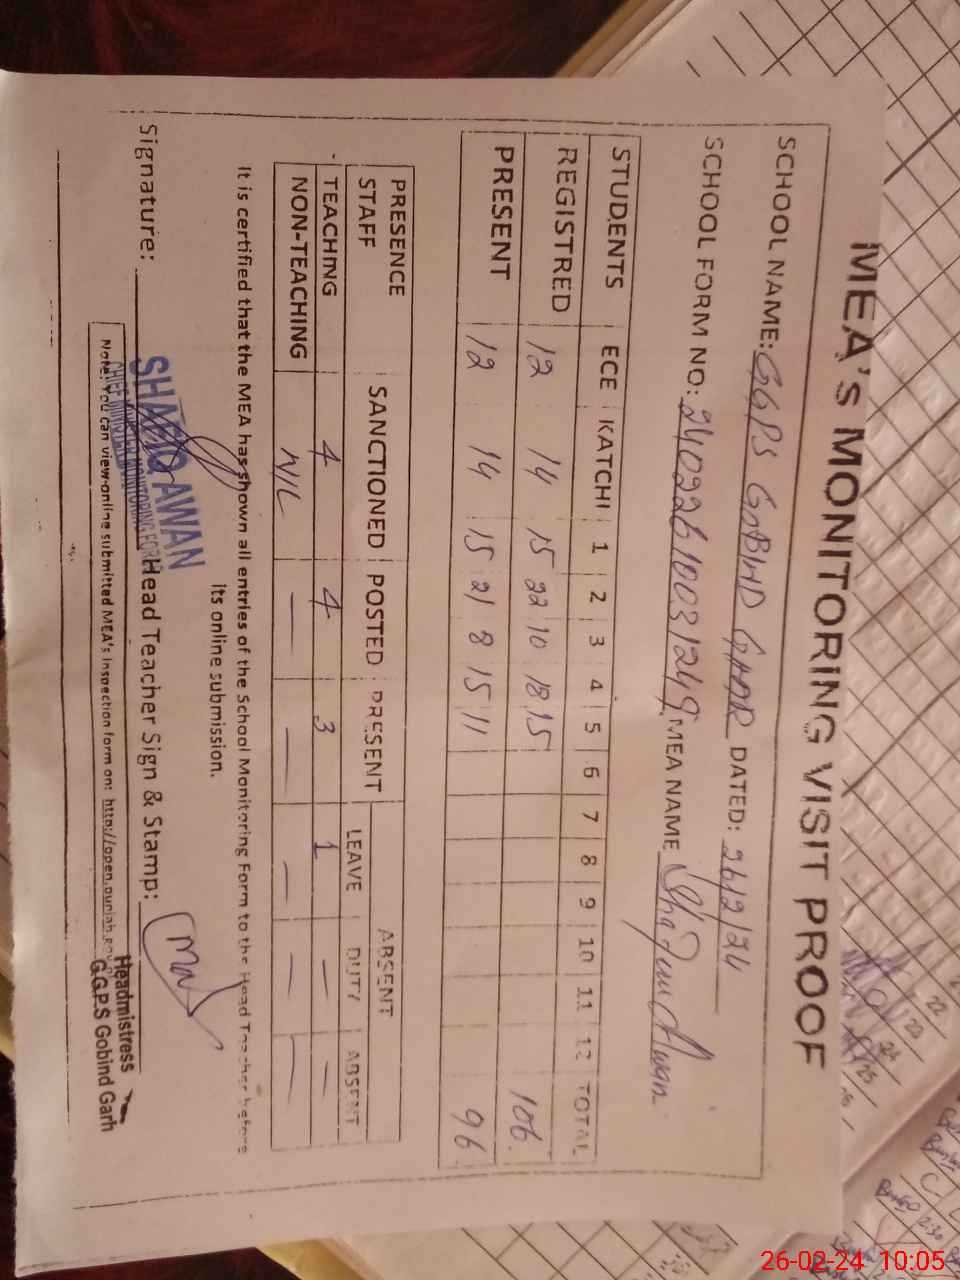 MEA'S MONITORING VISIT PROOF
SCHOOL NAME: GGPS GOBIND GHAR DATED: 26/2/24
SCHOOL FORM NO: 24022610031249 MEA NAME Shafiq Awan
STUDENTS ECE KATCHI 1 2 3 4 5 6 7 8 9 10 11 12 TOTAL
REGISTRED 12 14 15 22 10 18 15 106
PRESENT 12 14 15 21 8 15 11 96
PRESENCE STAFF SANCTIONED POSTED PRESENT ABSENT
LEAVE DUTY ABSENT
TEACHING 4 4 3 1 — —
NON-TEACHING NIL — — — — —
It is certified that the MEA has shown all entries of the School Monitoring Form to the Head Teacher before
its online submission.
Signature: Head Teacher Sign & Stamp:
SHAFIQ AWAN
CHIEF MINISTER MONITORING FOR
Headmistress
G.G.P.S Gobind Garh
Note: You can view online submitted MEA's Inspection form on: http://open.punjab.gov
22
23
24
25
C
230
26-02-24 10:05